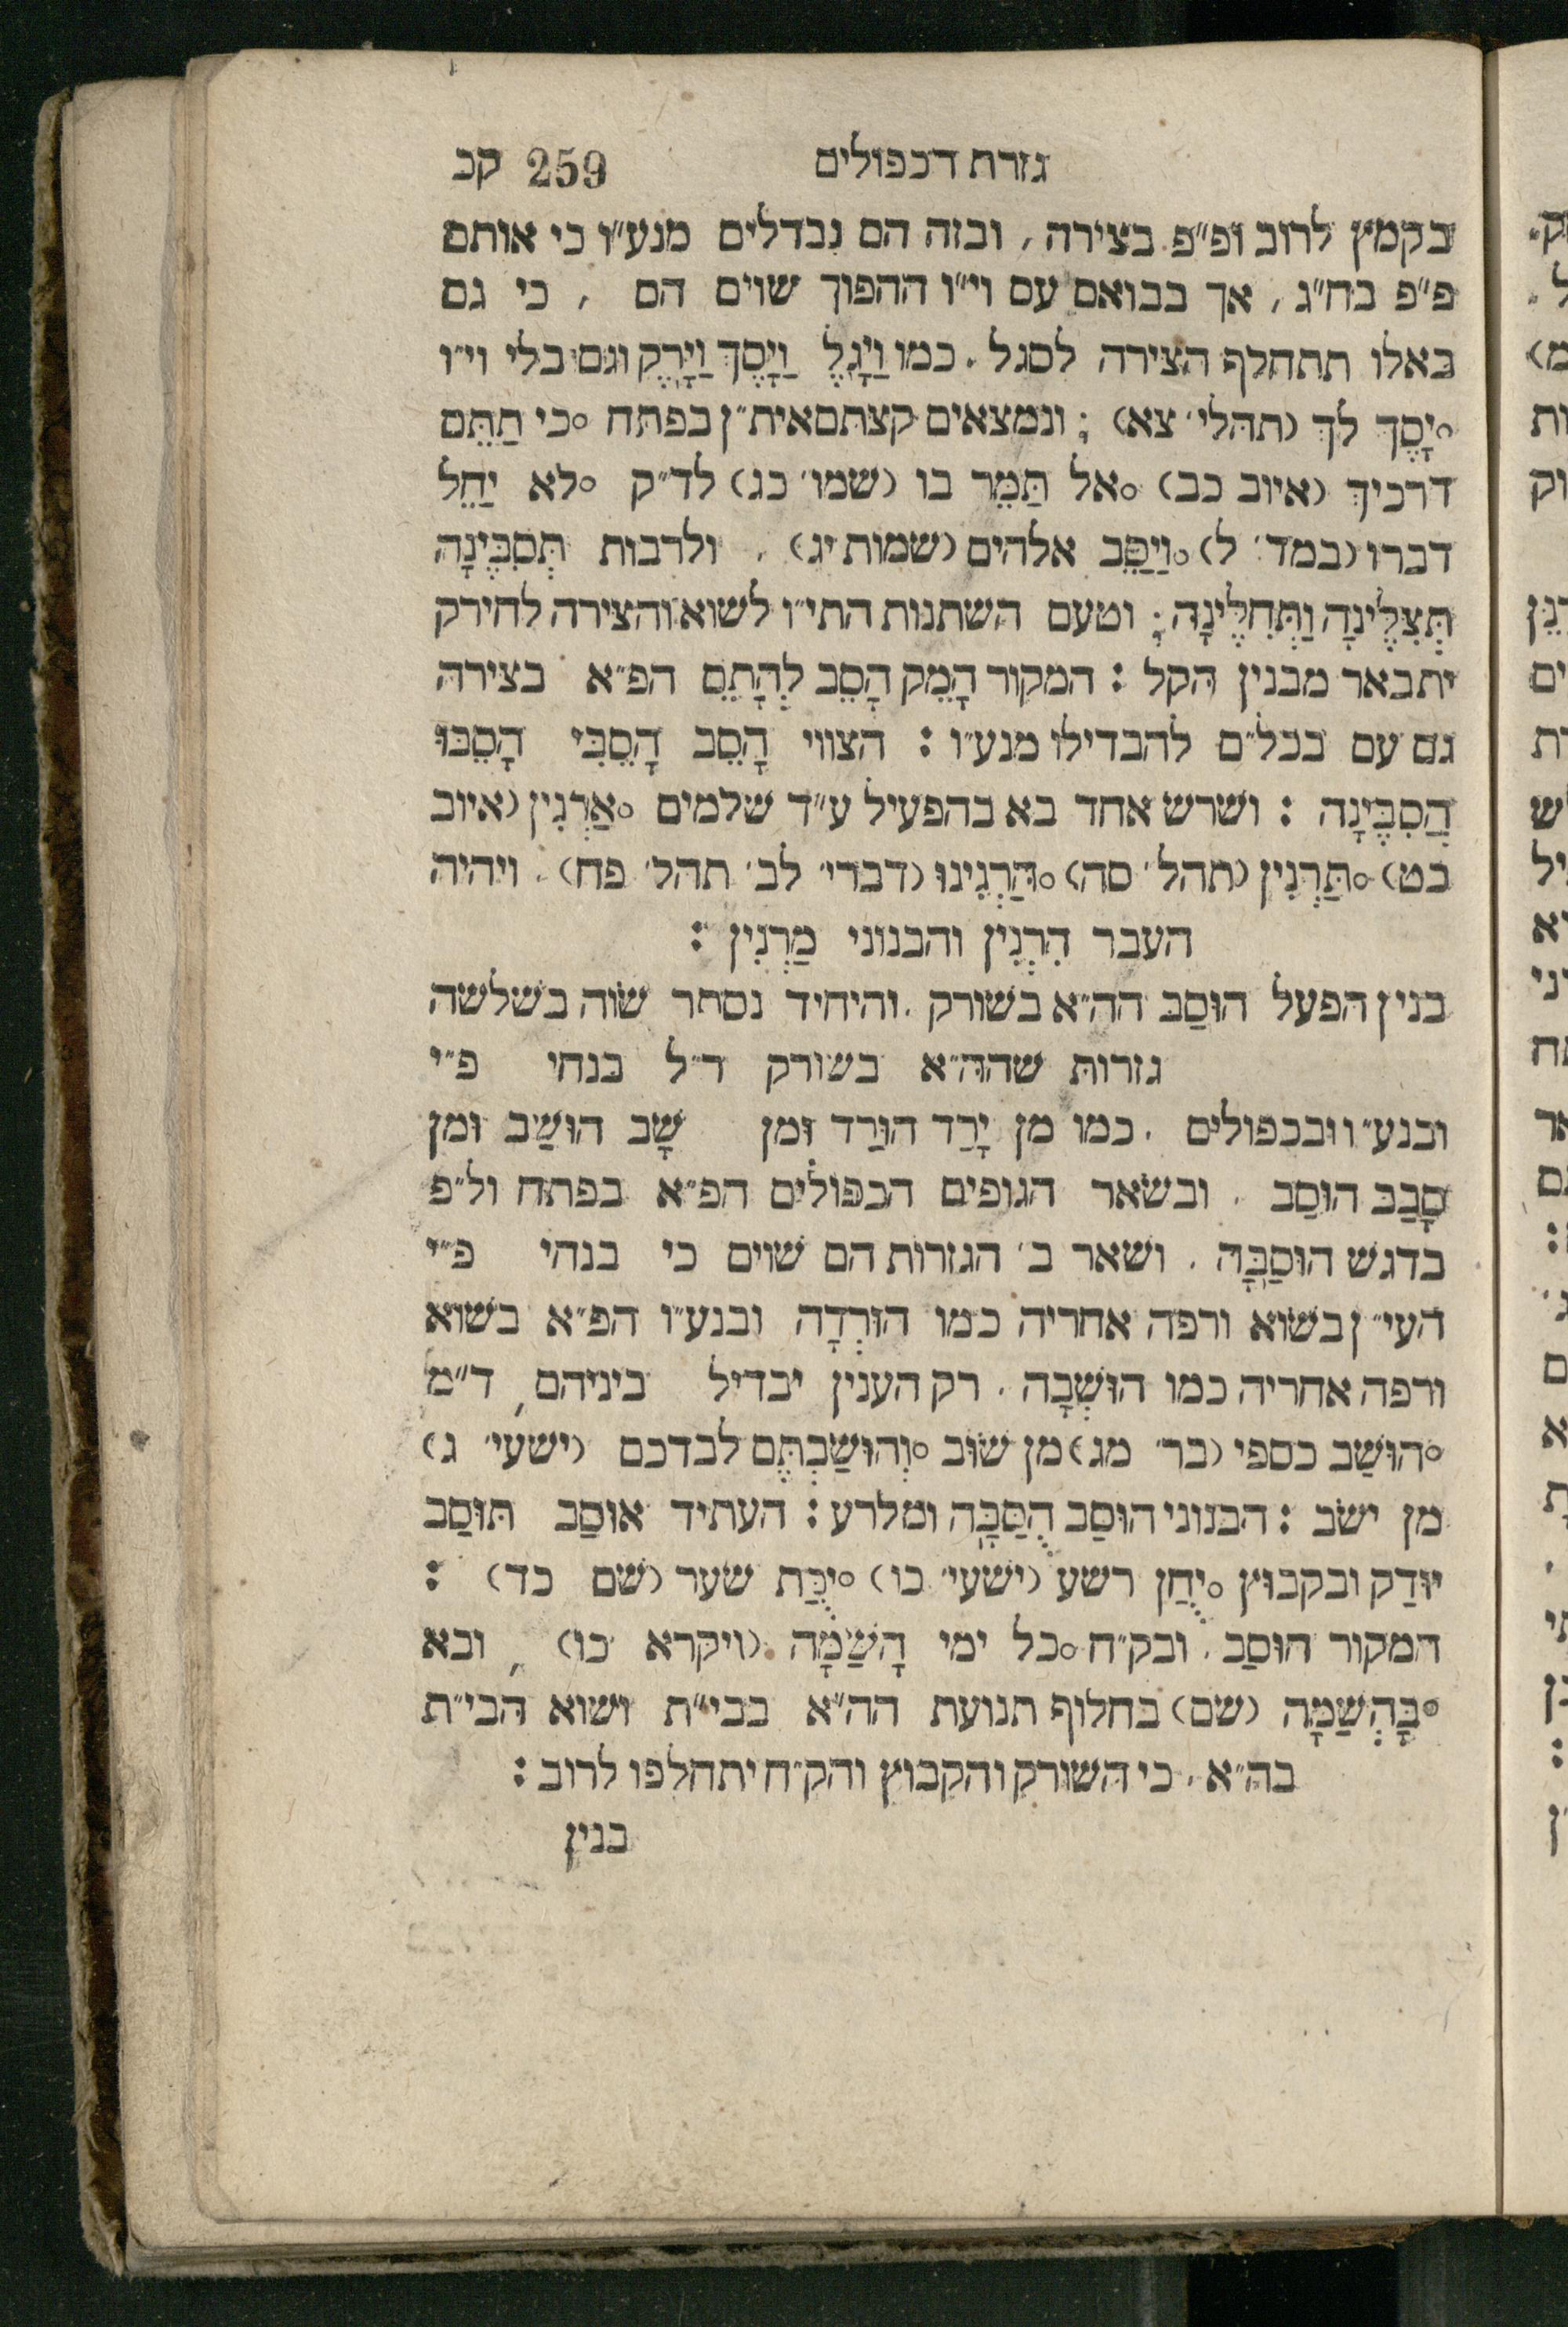 גזרת דכפולים 259 קכ
בקמץ לרוב ופ״פ בצירה, ובזה הם נבדלים מנע״ו כי אותם
פ״פ בח״ג, אך בבואם עם וי״ו ההפוך שוים הם, כי גם
באלו תתחלף הצירה לסגל. כמו וַיָּגֶל וַיָּסֶךְ וַיָּרֶק וגם בלי וי״ו
°יָסֶךְ לך (תהלי׳ צא): ונמצאים קצתם אית״ן בפתח °כי תַתֵּם
דרכיך (איוב כב) °אל תַּמֵּר בו (שמו׳ כג) לד״ק °לא יַחֵל
דברו (במד׳ ל) °וַיַּסֵּב אלהים (שמות יג). ולרבות תְּסִבֶּינָה
תְּצִלֶּינָה וַתְּחִלֶּינָה: וטעם השתנות התי״ו לשוא והצירה לחירק
יתבאר מבנין הקל: המקור הָמֵק הָסֵב לְהָתֵם הפ״א בצירה
גם עם בכל״ם להבדילו מנע״ו: הצווי הָסֵב הָסֵבִּי הָסֵבּוּ
הֲסִבֶּינָה: ושרש אחד בא בהפעיל ע״ד שלמים °אַרְנִין (איוב
כט) °תַּרְנִין (תהל׳ סה) °הַרְנִינוּ (דברי׳ לב׳ תהל׳ פח). ויהיה
העבר הִרְנִין והבנוני מַרְנִין:
בנין הפעל הוּסַב הה״א בשורק. והיחיד נסתר שוה בשלשה
גזרות שהה״א בשורק ד״ל בנחי פ״י
ובנע״ו ובכפולים. כמו מן יָרַד הוּרַד ומן שָׁב הוּשַׁב ומן
סָבַב הוּסַב. ובשאר הגופים הכפולים הפ״א בפתח ול״פ
בדגש הוּסַבָּה. ושאר ב׳ הגזרות הם שוים כי בנחי פ״י
העי״ן בשוא ורפה אחריה כמו הוּרְדָה ובנע״ו הפ״א בשוא
ורפה אחריה כמו הוּשְׁבָה. רק הענין יבדיל ביניהם, ד״מ
°הוּשַׁב כספי (בר׳ מג) מן שׁוּב °וְהוּשַׁבְתֶּם לבדכם (ישעי׳ ג)
מן ישב: הבנוני הוּסַב הֻסַּבָּה ומלרע: העתיד אוּסַב תּוּסַב
יוּדַק ובקבוץ °יֻחַן רשע (ישעי׳ כו) °יֻכַּת שער (שם כד):
המקור הוּסַב. ובק״ח °כל ימי הָשַׁמָּה (ויקרא כו), ובא
°בָּהְשַׁמָּה (שם) בחלוף תנועת הה״א בבי״ת ושוא הבי״ת
בה״א. כי השורק והקבוץ והק״ח יתחלפו לרוב:
בנין